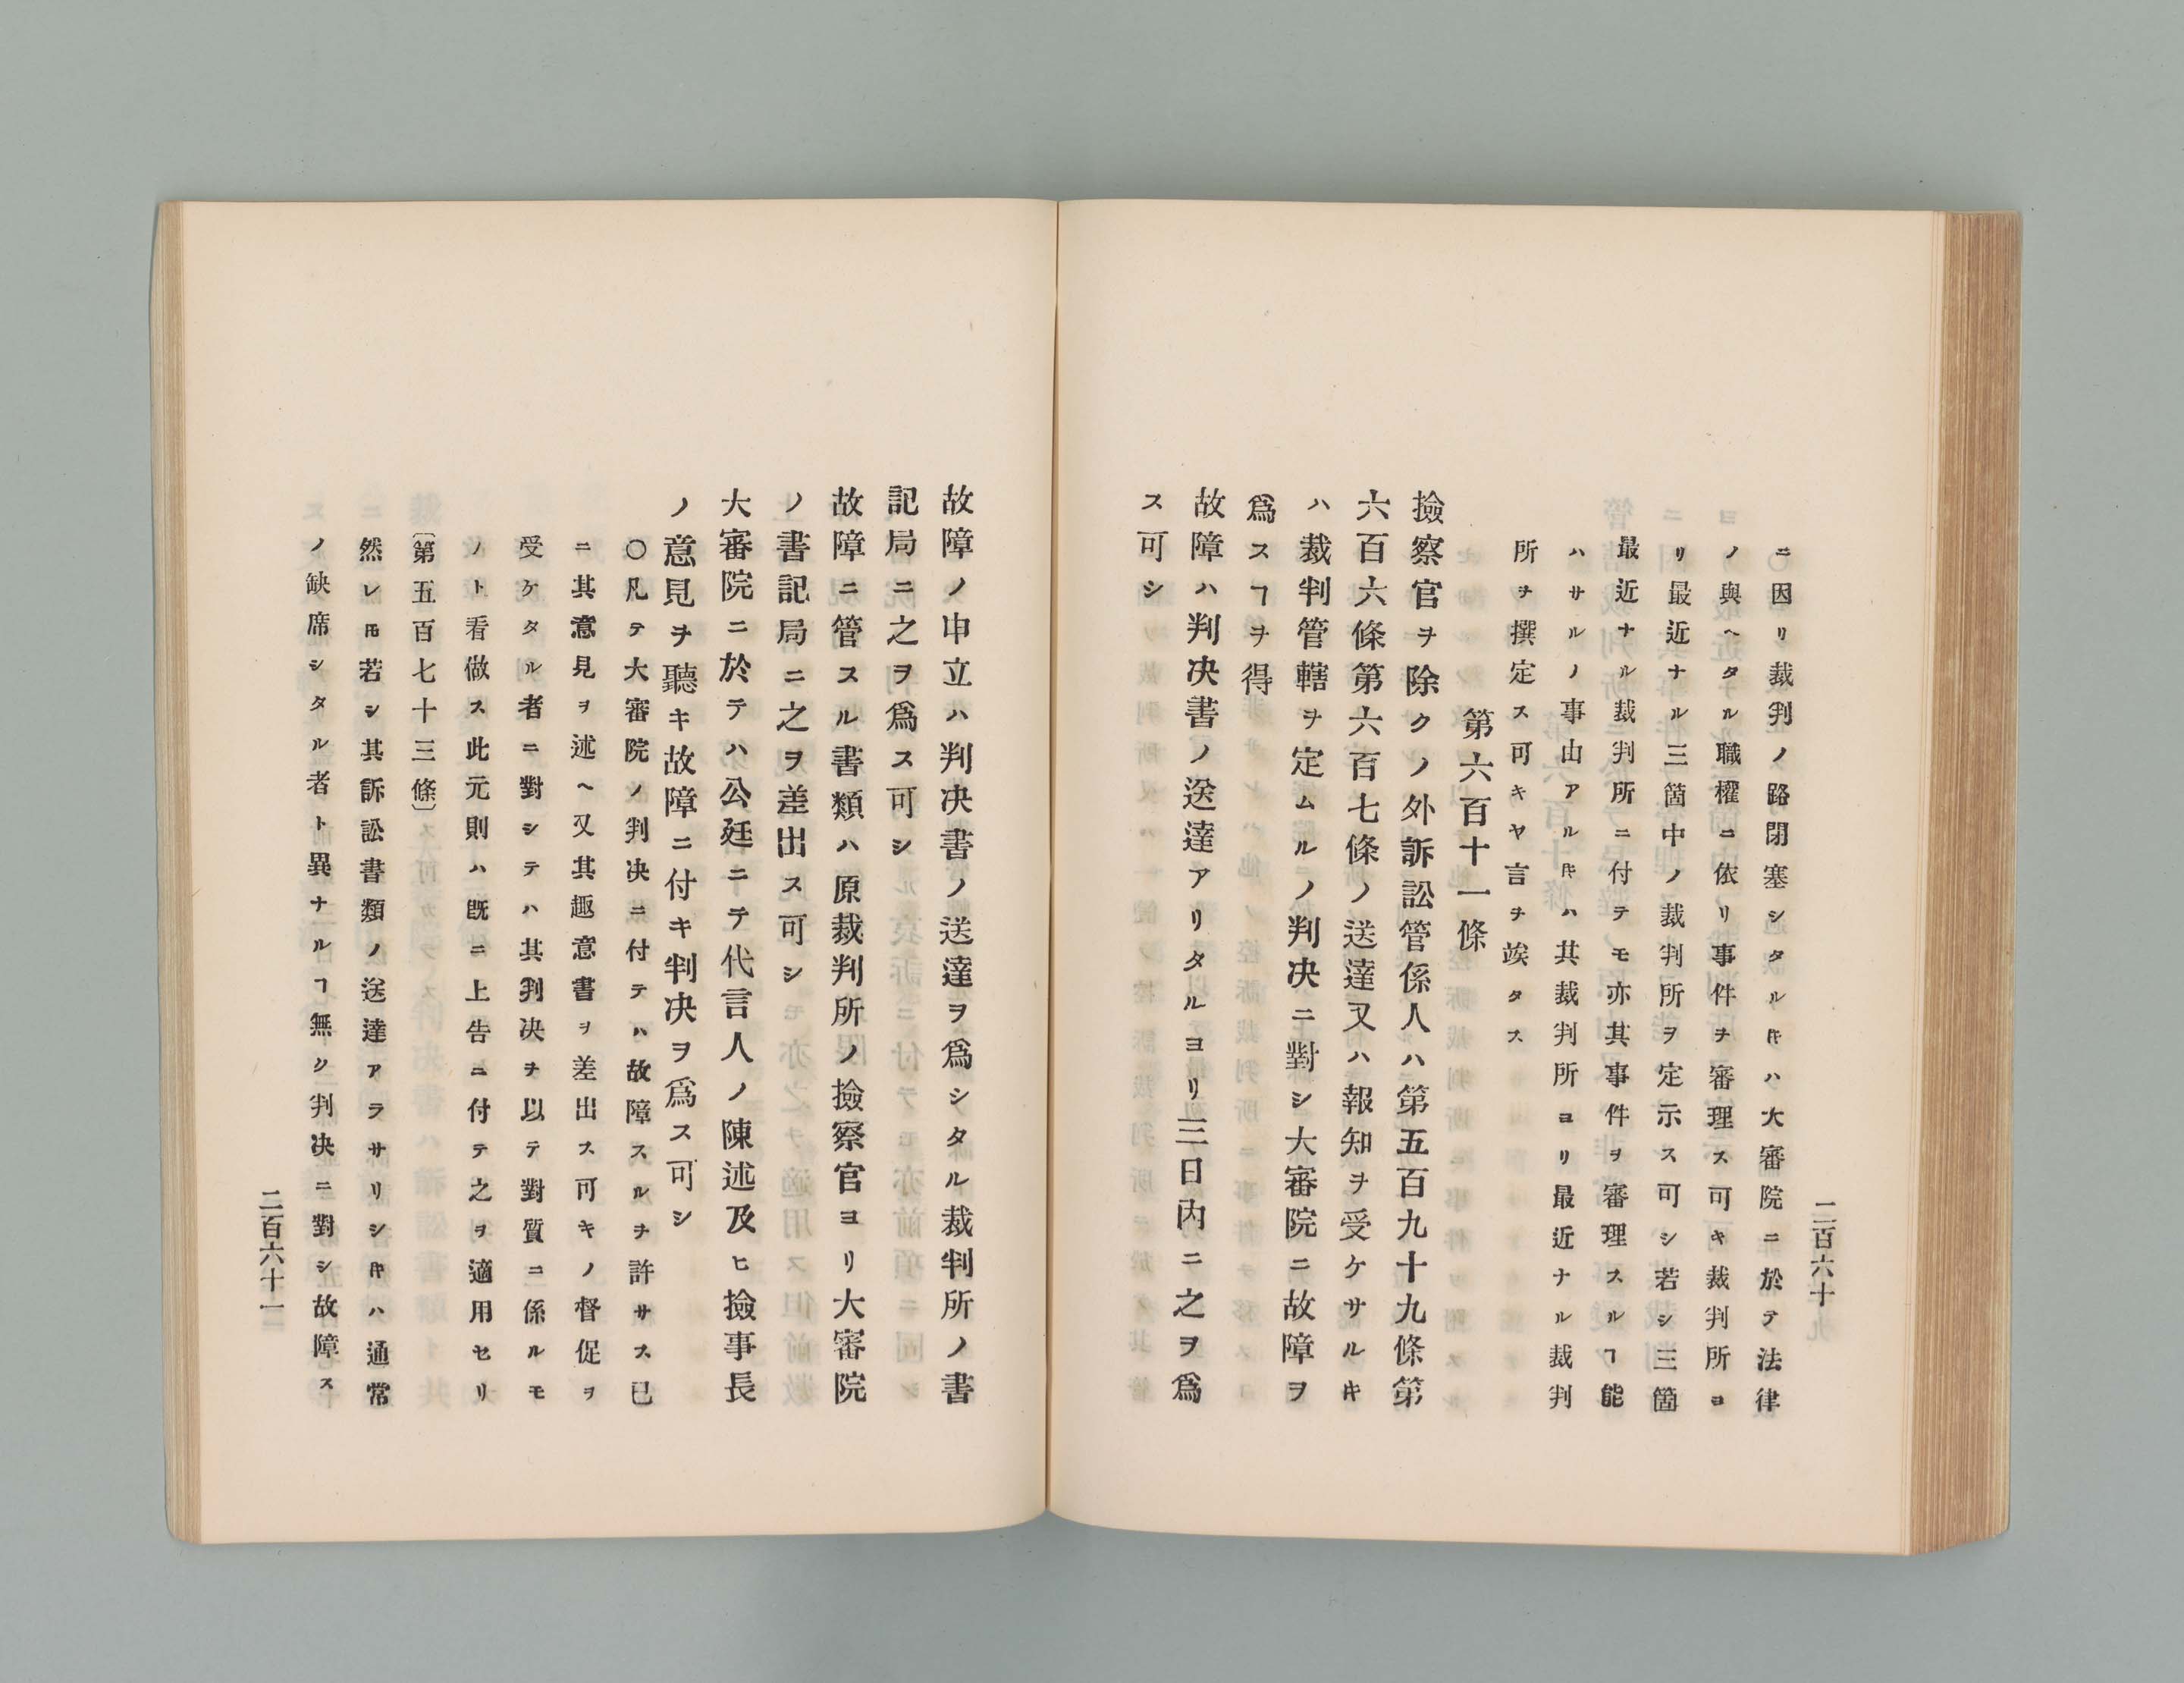 二百六十
ニ〇因リ裁判ノ路閉塞シタルキハ大審院ニ於テ法律
ノ與ヘタル職權ニ依リ事件ヲ審理ス可キ裁判所ヨ
リ最近ナル三箇中ノ裁判所ヲ定示ス可シ若シ三箇
最近ナル裁判所ニ付テモ亦其事件ヲ審理スルヿ能
ハサルノ事由アルキハ其裁判所ヨリ最近ナル裁判
所ヲ撰定ス可キヤ言ヲ竢タス
第六百十一條
撿察官ヲ除クノ外訴訟管係人ハ第五百九十九條第
六百六條第六百七條ノ送達又ハ報知ヲ受ケサルキ
ハ裁判管轄ヲ定ムルノ判决ニ對シ大審院ニ故障ヲ
爲スヿヲ得
故障ハ判决書ノ送達アリタルヨリ三日内ニ之ヲ爲
ス可シ
故障ノ申立ハ判决書ノ送達ヲ爲シタル裁判所ノ書
記局ニ之ヲ爲ス可シ
故障ニ管スル書類ハ原裁判所ノ撿察官ヨリ大審院
ノ書記局ニ之ヲ差出ス可シ
大審院ニ於テハ公廷ニテ代言人ノ陳述及ヒ撿事長
ノ意見ヲ聽キ故障ニ付キ判决ヲ爲ス可シ
〇凡テ大審院ノ判决ニ付テハ故障スルヲ許サス已
ニ其意見ヲ述ヘ又其趣意書ヲ差出ス可キノ督促ヲ
受ケタル者ニ對シテハ其判决ヲ以テ對質ニ係ルモ
ノト看做ス此元則ハ既ニ上告ニ付テ之ヲ適用セリ
〔第五百七十三條〕
然レ𪜈若シ其訴訟書類ノ送達アラサリシキハ通常
ノ缺席シタル者ト異ナルヿ無ク判决ニ對シ故障ス
二百六十一